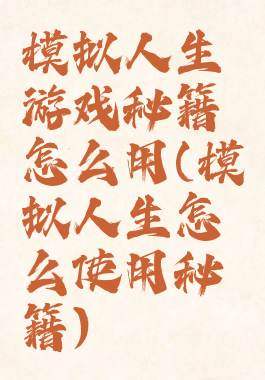 模拟人生
游戏秘籍
怎么用(模
拟人生怎
么使用秘
籍)